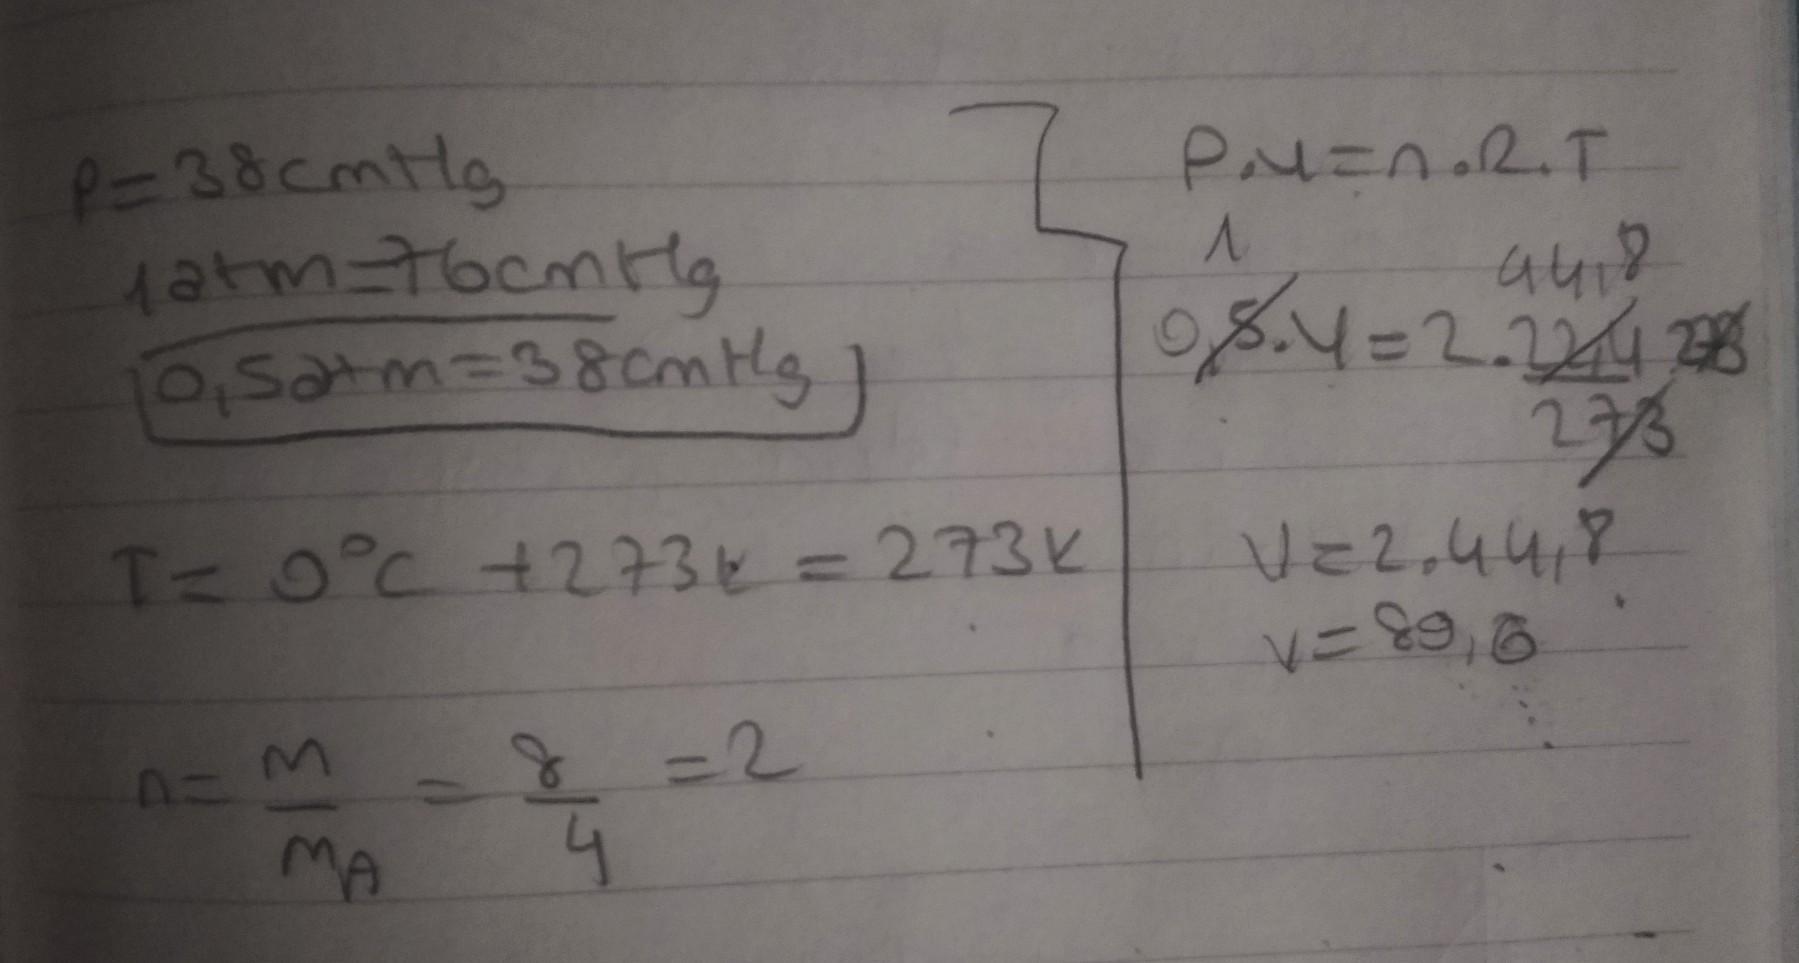 P=38cmHg
1atm=76cmHg
0,5atm=38cmHg
T= 0°C +273K = 273K
n= m/mA = 8/4 =2
P.V=n.R.T
1 44,8
0,5.V=2.22,4/273.273
V=2.44,8
V=89,6